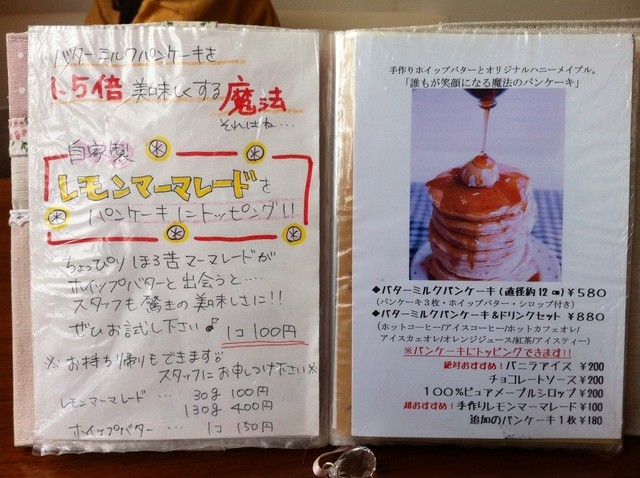 バターミルクパンケーキを
1.5倍美味しくする魔法
それはね…
自家製
レモンマーマレードを
パンケーキにトッピング!!
ちょっぴりほろ苦マーマレードが
ホイップバターと出会うと….
スタッフも驚きの美味しさに!!
ぜひお試し下さい♪ 1コ100円
※お持ち帰りもできます
スタッフにお申しつけ下さい※
レモンマーマレード … 30g 100円
130g 400円
ホイップバター … 1コ 150円
手作りホイップバターとオリジナルハニーメイプル。
「誰もが笑顔になる魔法のパンケーキ」
◆バターミルクパンケーキ(直径約12㎝)￥580
(パンケーキ3枚・ホイップバター・シロップ付き)
◆バターミルクパンケーキ&ドリンクセット ￥880
(ホットコーヒー/アイスコーヒー/ホットカフェオレ/
アイスカフェオレ/オレンジジュース/紅茶/アイスティー)
※パンケーキにトッピングできます!!
絶対おすすめ!バニラアイス ¥200
チョコレートソース ¥200
100%ピュアメープルシロップ ¥200
超おすすめ!手作りレモンマーマレード ¥100
追加のパンケーキ1枚 ¥180